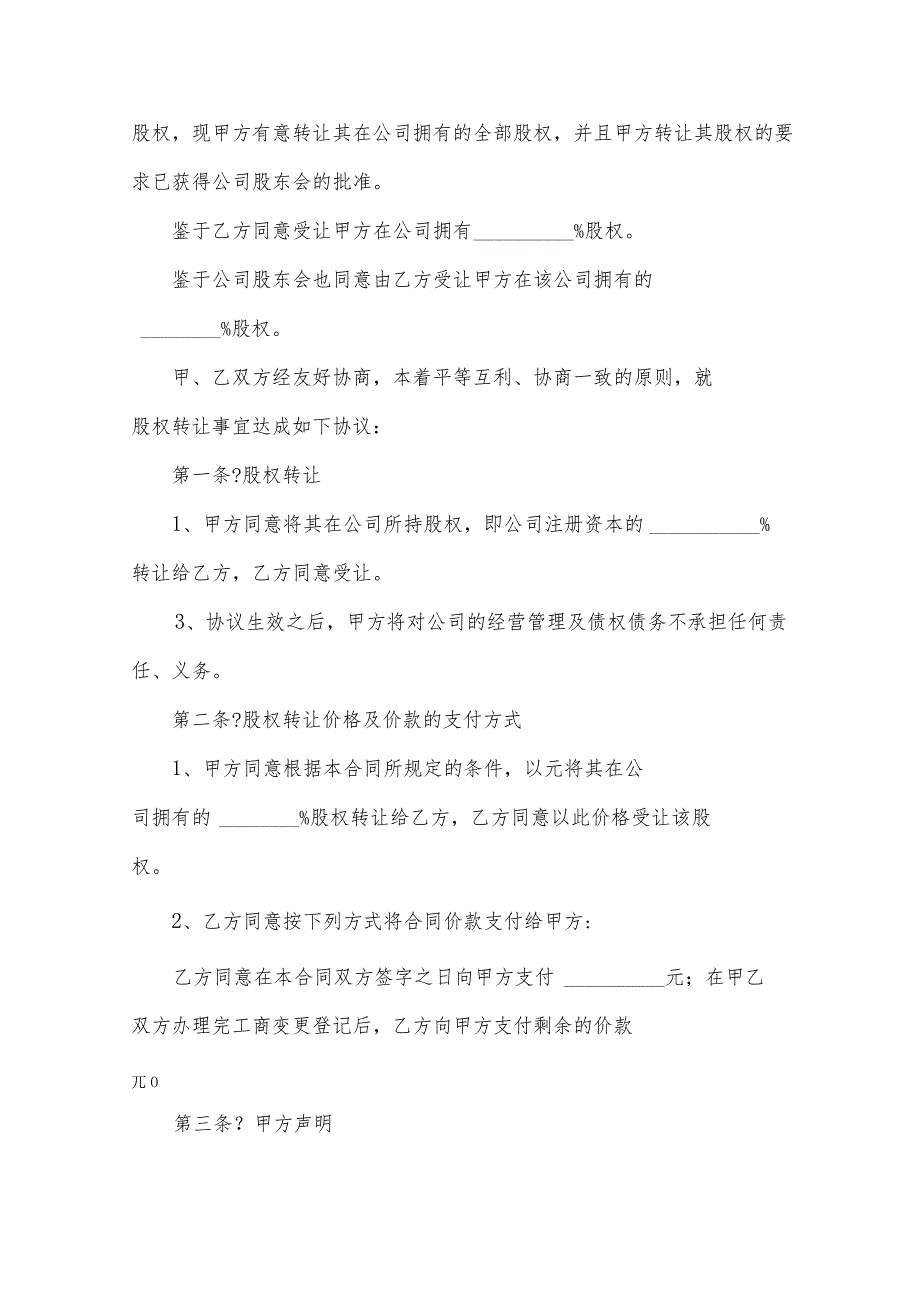 股权，现甲方有意转让其在公司拥有的全部股权，并且甲方转让其股权的要
求已获得公司股东会的批准。
鉴于乙方同意受让甲方在公司拥有__________%股权。
鉴于公司股东会也同意由乙方受让甲方在该公司拥有的
________%股权。
甲、乙双方经友好协商，本着平等互利、协商一致的原则，就
股权转让事宜达成如下协议：
第一条?股权转让
1、甲方同意将其在公司所持股权，即公司注册资本的 ___________%
转让给乙方，乙方同意受让。
3、协议生效之后，甲方将对公司的经营管理及债权债务不承担任何责
任、义务。
第二条?股权转让价格及价款的支付方式
1、甲方同意根据本合同所规定的条件，以元将其在公
司拥有的 ________%股权转让给乙方，乙方同意以此价格受让该股
权。
2、乙方同意按下列方式将合同价款支付给甲方：
乙方同意在本合同双方签字之日向甲方支付 __________元；在甲乙
双方办理完工商变更登记后，乙方向甲方支付剩余的价款
兀0
第三条？甲方声明